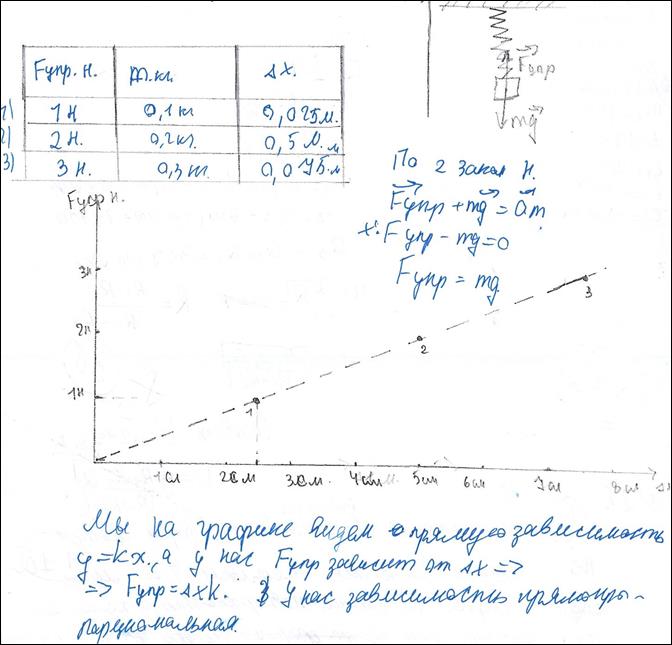 Fупр. Н. m.кг. Δx.
1) 1 Н 0,1 кг 0,025 м.
2) 2 Н. 0,2 кг. 0,5 м. м
3) 3 Н. 0,3 кг. 0,075. м
Fупр
mg
По 2 закон Н.
Fупр + mg = am
x: Fупр - mg = 0
Fупр = mg
Fупр Н.
3Н
2Н
1Н
1 2 3
1см 2см 3см. 4см 5см 6см 7см 8см
Мы на графике видем прямую зависимость
y=kx, а у нас Fупр зависит от Δx =>
=> Fупр = Δxk. У нас зависимость прямопро-
парцыональная.